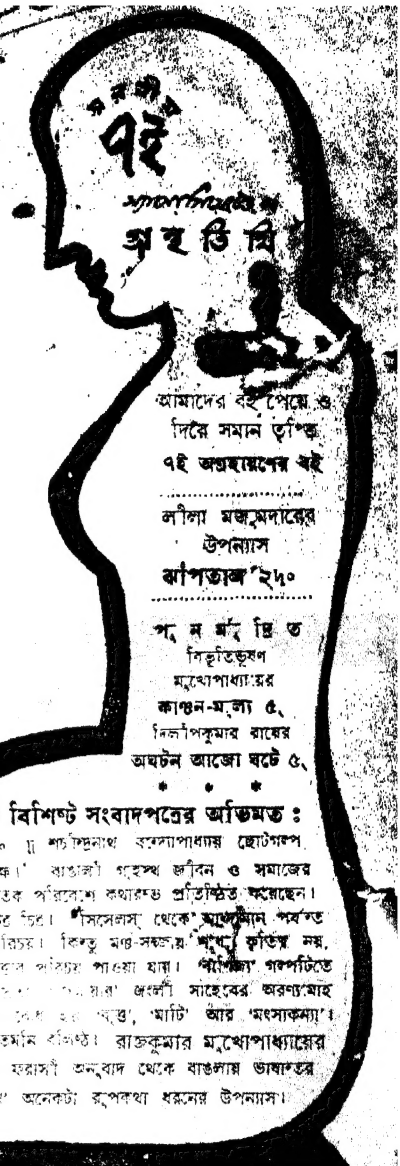 স্মরণীয়
৭ই
অ্যাসোসিয়েটেড-এর
গ্রন্থতিথি
আমাদের বই পেয়ে ও
দিয়ে সমান তৃপ্তি
৭ই অগ্রহায়ণের বই
লীলা মজুমদারের
উপন্যাস
ঝাঁপতাল ২৫০
পুনর্মুদ্রিত
বিভূতিভূষণ
মুখোপাধ্যায়ের
কাঞ্চন-মূল্য ৫৲
দিলীপকুমার রায়ের
অঘটন আজো ঘটে ৫৲
* * *
বিশিষ্ট সংবাদপত্রের অভিমত :
॥ শচীন্দ্রনাথ বন্দ্যোপাধ্যায় ছোটগল্প
বাঙালী গৃহস্থ জীবন ও সমাজের
পরিবেশে কথারম্ভ প্রতিষ্ঠিত করেছেন।
চিত্র। 'সিসেলস্ থেকে আন্দামান পর্যন্ত
কিন্তু মঞ্চ-সজ্জায় শুধু কৃতিত্ব নয়,
পরিচয় পাওয়া যায়। 'বাণিজ্য' গল্পটিতে
জংলী সাহেবের অরণ্যমোহ
'মাটি' আর 'মৎস্যকন্যা'।
বলিষ্ঠ। রাজকুমার মুখোপাধ্যায়ের
ফরাসী অনুবাদ থেকে বাঙলায় ভাষান্তর
অনেকটা রূপকথা ধরনের উপন্যাস।